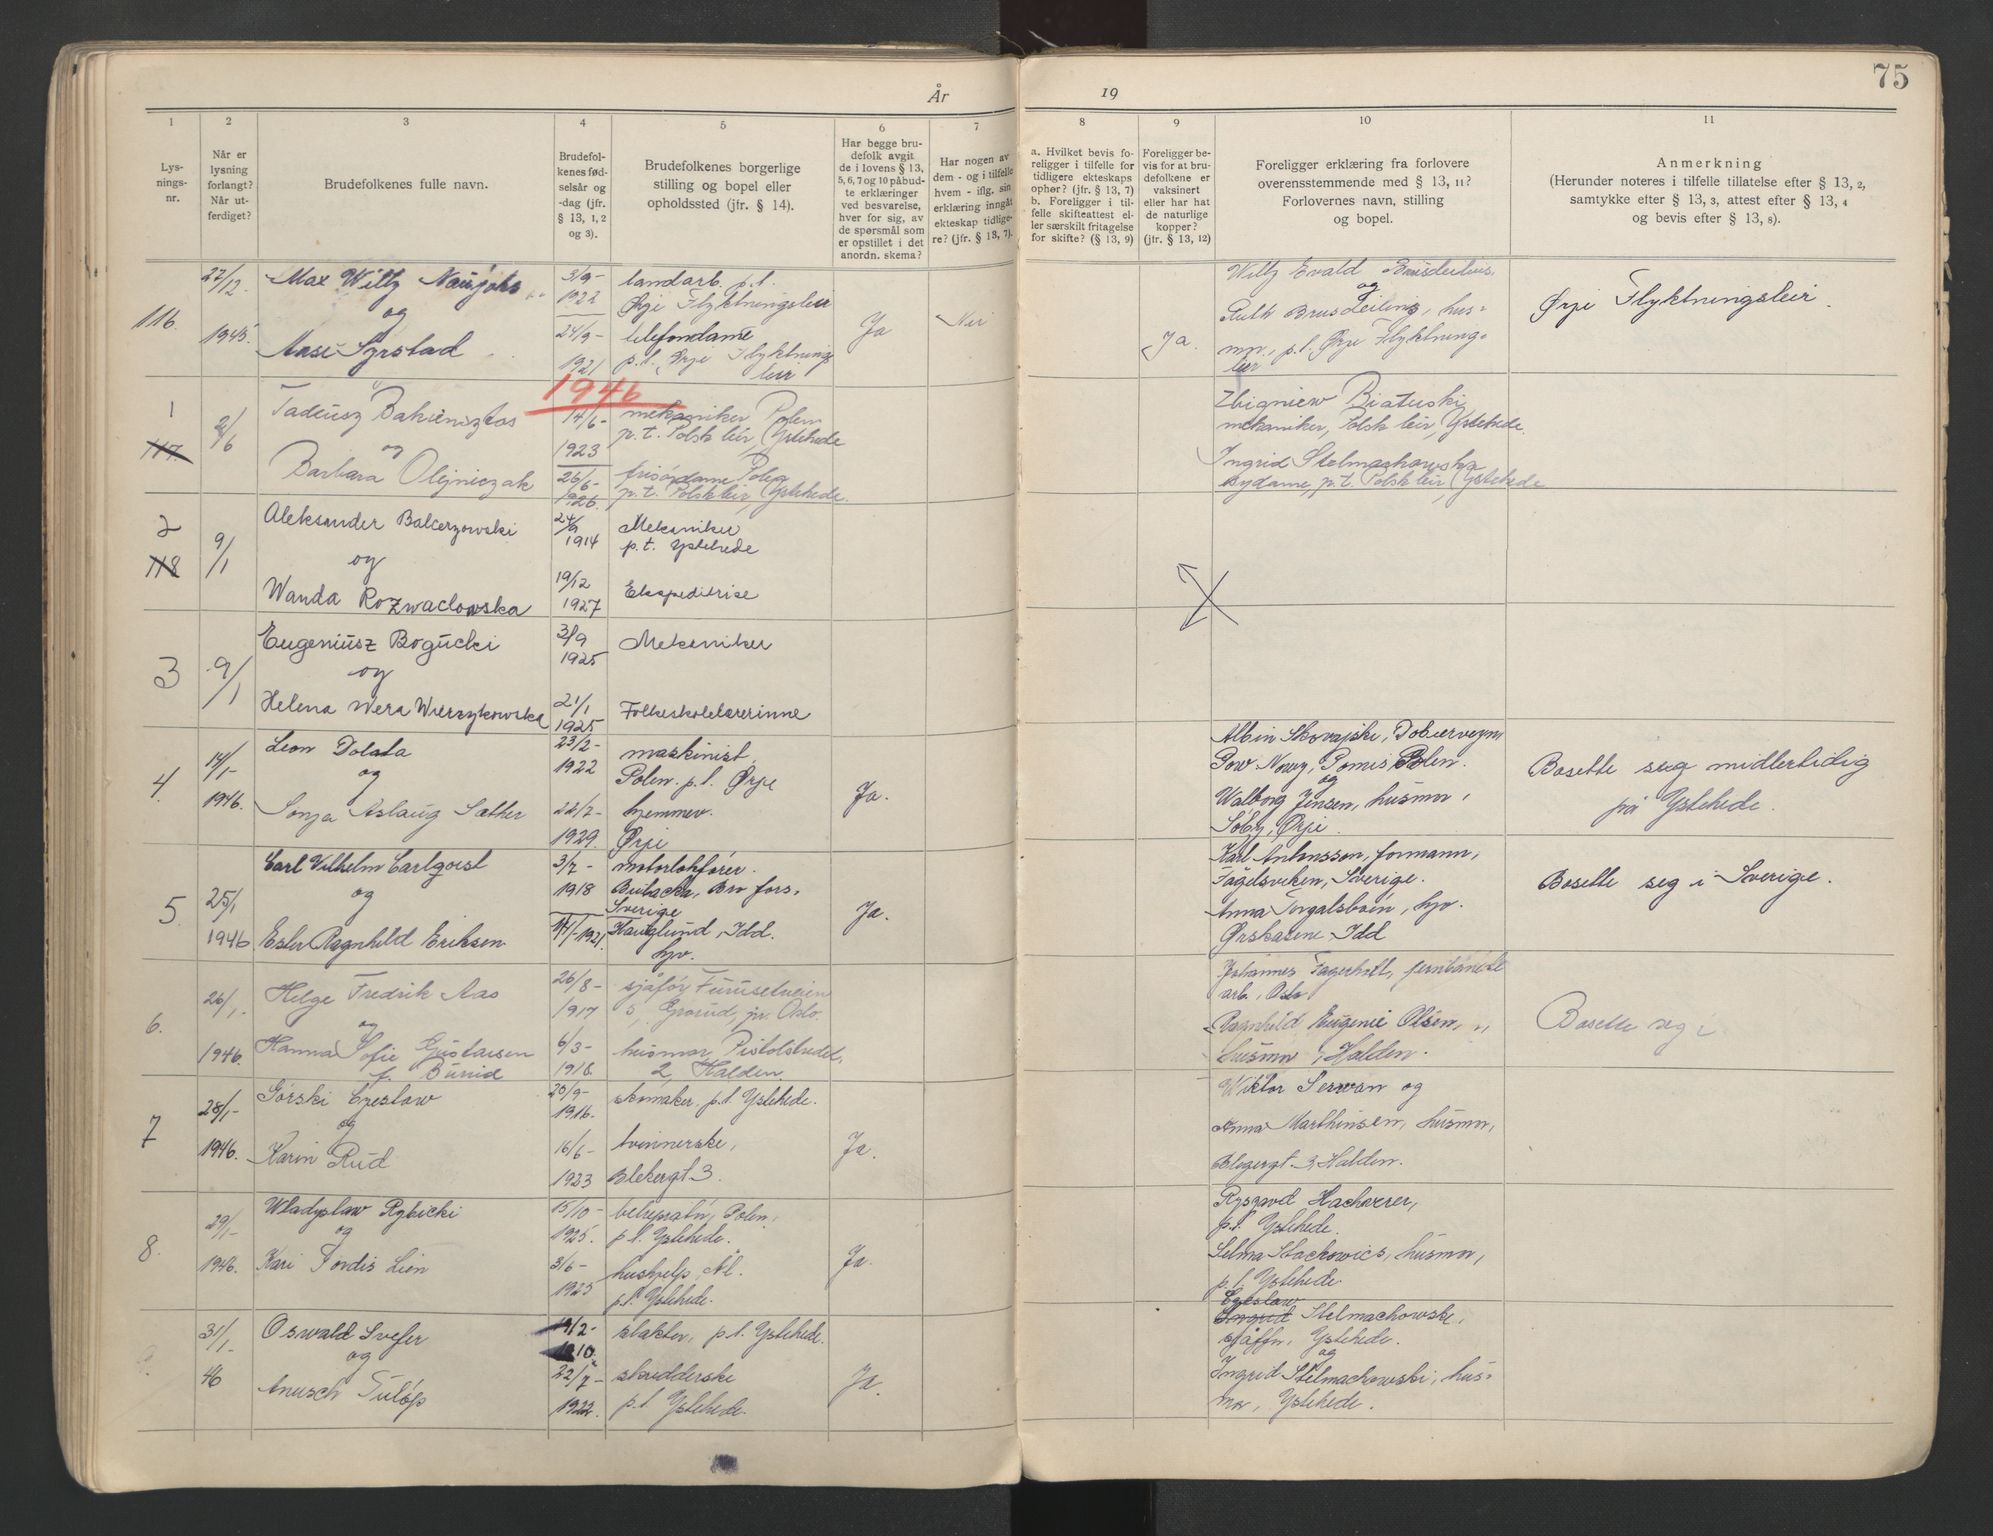 75
År
19
1
2
3
4
5
6
7
8
9
10
11
Lys-
nings-
nr.
Når er
lysning
forlangt?
Når ut-
ferdiget?
Brudefolkenes fulle navn.
Brudefol-
kenes fød-
selsår og
-dag (jfr.
§ 13, 1, 2
og 3).
Brudefolkenes borgerlige
stilling og bopel eller
opholdssted (jfr. § 14).
Har begge bru-
defolk avgit
de i lovens § 13,
5, 6, 7 og 10 påbud-
te erklæringer
ved besvarelse,
hver for sig, av
de spørsmål som
er opstillet i det
anordn. skema?
Har nogen av
dem - og i tilfelle
hvem - iflg. sin
erklæring inngåt
ekteskap tidlige-
re? (jfr. § 13, 7).
a. Hvilket bevis fo-
religger i tilfelle for
tidligere ekteskaps
ophør? (jfr. § 13, 7)
b. Foreligger i til-
felle skifteattest el-
ler særskilt fritagelse
for skifte? (§ 13, 9)
Foreligger be-
vis for at bru-
defolkene er
vaksinert
eller har hat
de naturlige
kopper?
(jfr. § 13, 12)
Foreligger erklæring fra forlovere
overensstemmende med § 13, 11?
Forlovernes navn, stilling
og bopel.
Anmerkning
(Herunder noteres i tilfelle tillatelse efter § 13, 2,
samtykke efter § 13, 3, attest efter § 13, 4
og bevis efter § 13, 8).
116.
27/12
1945.
Max Willy
og
Syrstad
3/9-
1922
24/9-
1921
landarb. p.t.
Ørje Flyktningsleir
telefondame
p.t. Ørje Flyktnings
leir
Ja
Nei
Ja.
Willy Evald
og
Ruth Brusdeilins, hus-
mor, p.t. Ørje Flyktning-
leir
Ørje Flyktningsleir.
1946
1
117.
2/6
Tadeusz
og
Barbara Olejniczak
14/6-
1923
26/6-
1926.
mekaniker Polen
p.t. Polsk leir, Ystehede
frisørdame Polen
p.t. Polsk leir, Ystehede.
Zbigniew Biatuski
mekaniker, Polsk leir, Ystehede.
Ingrid Stelmachowska
sydame, p.t. Polsk leir, Ystehede
2
118
9/1
Aleksander Balcerzowski
og
Wanda Rozwaclowska
24/9
1914
19/12
1927
Mekaniker
p.t. Ystehede
Ekspeditrise
3
9/1
Eugeniusz Bogucki
og
Helena Wera Wierzykowska
3/9
1925
21/1
1925
Mekaniker
Folkeskolelærerinne
4.
14/1-
1946.
Leon Dolata
og
Sonja Aslaug Sæther
23/2-
1922
22/7-
1929
maskinist,
Polen. p.t. Ørje
hjemmev.
Ørje
Ja.
Albin
Pow. Nowy, Polen.
og
Walborg Jensen, husmor,
Søby, Ørje.
Bosette seg midlertidig
på Ystehede.
5
25/1
1946
Carl Vilhelm Carlqvist
og
Ester Ragnhild Eriksen
3/7-
1918
14/1-1921.
motorlokfører.
Bubacka, Bro fors.
Sverige
Hauglund, Idd.
hjv.
Ja.
Karl Antonsson, formann,
Fagelsviken, Sverige.
Anna Torgalsbøen, hjv.
Ørskasene, Idd
Bosette seg i Sverige.
6.
26/1.
1946.
Helge Fredrik Aas
og
Hanna Sofie Gustavsen
f. Burud
26/8-
1917
6/3-
1918
sjåfør Furusetveien
5, Grorud, pr. Oslo.
husmor, Pistolstredet,
2, Halden.
Johannes Fagerholt,
arb., Oslo
Ragnhild Eugenie Olsen,
husmor, Halden.
Bosette seg i
7
28/1-
1946.
Górski Czeslaw
og
Karin Rud
20/9-
1916.
16/6-
1923
skomaker, p.t. Ystehede.
tvinnerske,
Blekergt 3.
Ja.
Wiktor Serwan og
Anna Marthinsen, husmor,
Blegergt. 3, Halden.
8.
29/1-
1946.
Wladyslaw Rybicki
og
Kari Tordis Lien
15/10-
1925.
3/6-
1925
Polen,
p.t. Ystehede.
hushjelp, Ål.
p.t. Ystehede.
Ja.
Ryszard Hacherer,
p.t. Ystehede.
Selma Stackowics, husmor,
p.t. Ystehede.
9.
31/1-
46
Oswald Svefer
og
Anusch Fülöp
19/2-
1910
22/7-
1922.
slakter, p.t. Ystehede.
skredderske
p.t. Ystehede.
Ja.
Czeslaw
Ingrid Stelmachowske,
sjåfør, Ystehede.
og
Ingrid Stelmachowski, hus-
mor, Ystehede.